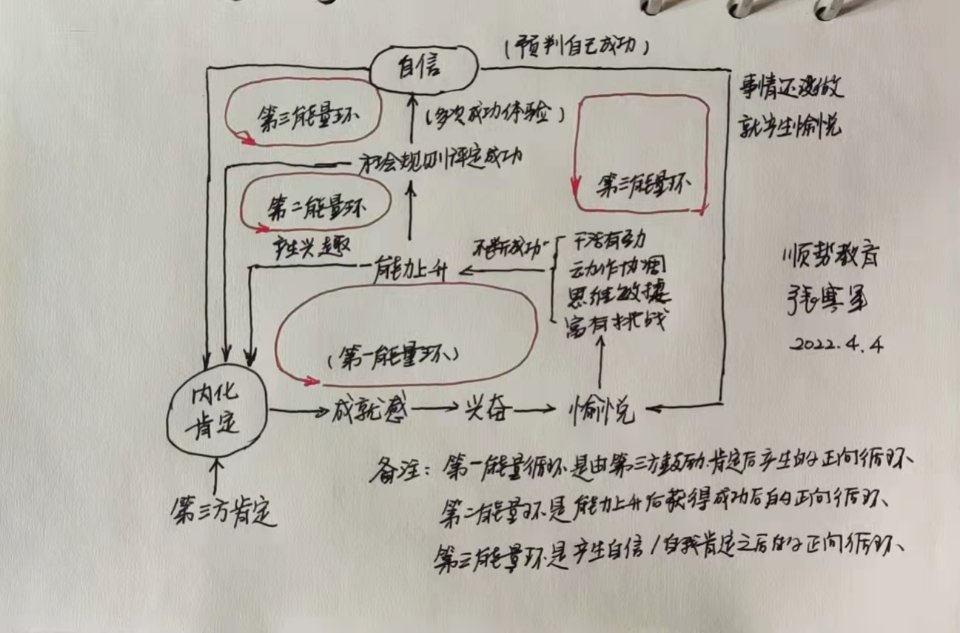 (预判自己成功)
自信
事情还没做
就产生愉悦
第三能量环
(多次成功体验)
社会规则评定成功
第三能量环
第二能量环
产生兴趣
能力上升
"不断成功"
干活有劲
动作协调
思维敏捷
富有挑战
顺势教育
张寒军
2022.4.4
(第一能量环)
内化
肯定
成就感
兴奋
愉悦
第三方肯定
备注: 第一能量循环是由第三方鼓励、肯定后产生的正向循环、
第二能量环是能力上升后获得成功后的正向循环、
第三能量环是产生自信/自我肯定之后的正向循环、